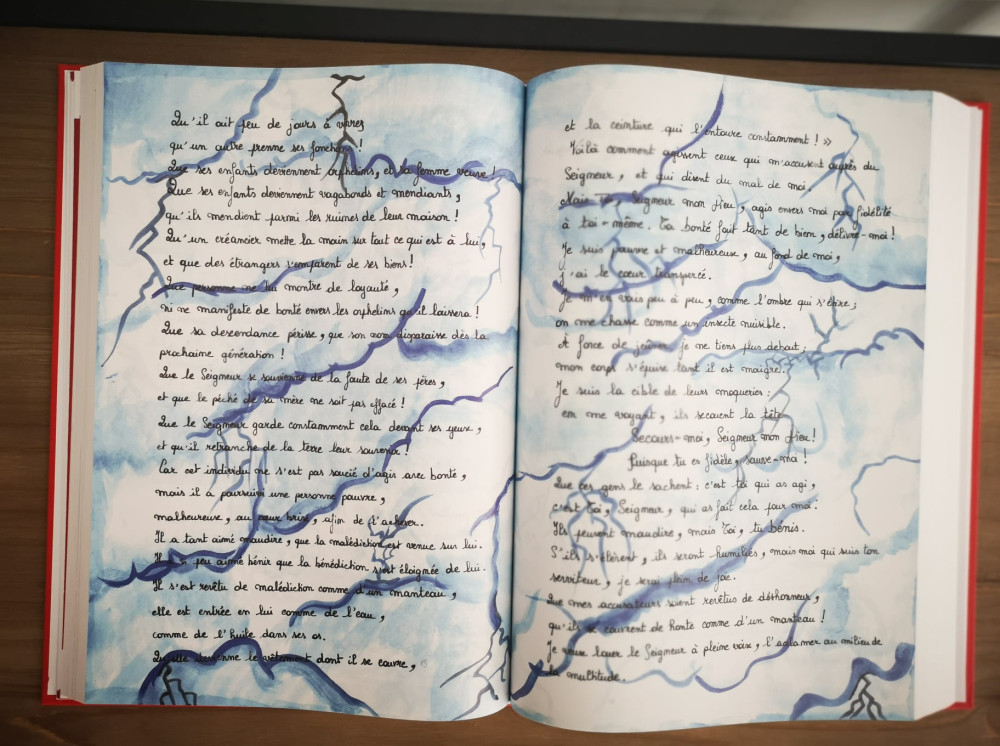 Qu'il ait peu de jours à vivre,
qu'un autre prenne ses fonctions !
Que ses enfants deviennent orphelins, et sa femme veuve !
Que ses enfants deviennent vagabonds et mendiants,
qu'ils mendient parmi les ruines de leur maison !
Qu'un créancier mette la main sur tout ce qui est à lui,
et que des étrangers s'emparent de ses biens !
Que personne ne lui montre de loyauté,
ni ne manifeste de bonté envers les orphelins qu'il laissera !
Que sa descendance périsse, que son nom disparaisse dès la
prochaine génération !
Que le Seigneur se souvienne de la faute de ses pères,
et que le péché de sa mère ne soit pas effacé !
Que le Seigneur garde constamment cela devant ses yeux,
et qu'il retranche de la terre leur souvenir !
Car cet individu ne s'est pas soucié d'agir avec bonté,
mais il a poursuivi une personne pauvre,
malheureuse, au cœur brisé, afin de l'achever.
Il a tant aimé maudire, que la malédiction est venue sur lui.
Il a si peu aimé bénir que la bénédiction s'est éloignée de lui.
Il s'est revêtu de malédiction comme d'un manteau,
elle est entrée en lui comme de l'eau,
comme de l'huile dans ses os.
Qu'elle devienne le vêtement dont il se couvre,
et la ceinture qui l'entoure constamment ! »
Voilà comment agissent ceux qui m'accusent auprès du
Seigneur, et qui disent du mal de moi.
Mais toi, Seigneur mon Dieu, agis envers moi par fidélité
à toi-même. Ta bonté fait tant de bien, délivre-moi !
Je suis pauvre et malheureuse, au fond de moi,
j'ai le cœur transpercé.
Je m'en vais peu à peu, comme l'ombre qui s'étire ;
on me chasse comme un insecte nuisible.
A force de jeûner je ne tiens plus debout ;
mon corps s'épuise tant il est maigre.
Je suis la cible de leurs moqueries :
en me voyant, ils secouent la tête.
Secours-moi, Seigneur mon Dieu !
Puisque tu es fidèle, sauve-moi !
Que ces gens le sachent : c'est toi qui as agi,
c'est Toi, Seigneur, qui as fait cela pour moi.
Ils peuvent maudire, mais Toi, tu bénis.
S'ils s'élèvent, ils seront humiliés, mais moi qui suis ton
serviteur, je serai plein de joie.
Que mes accusateurs soient revêtus de déshonneur,
qu'ils se couvrent de honte comme d'un manteau !
Je veux louer le Seigneur à pleine voix, l'acclamer au milieu de
la multitude.